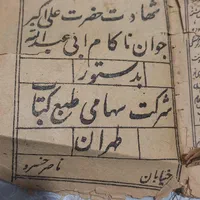 شهادت حضرت علی اکبر
جوان ناکام ابی عبدالله
بدستور
شرکت سهامی طبع کتاب
طهران
خیابان ناصر خسرو